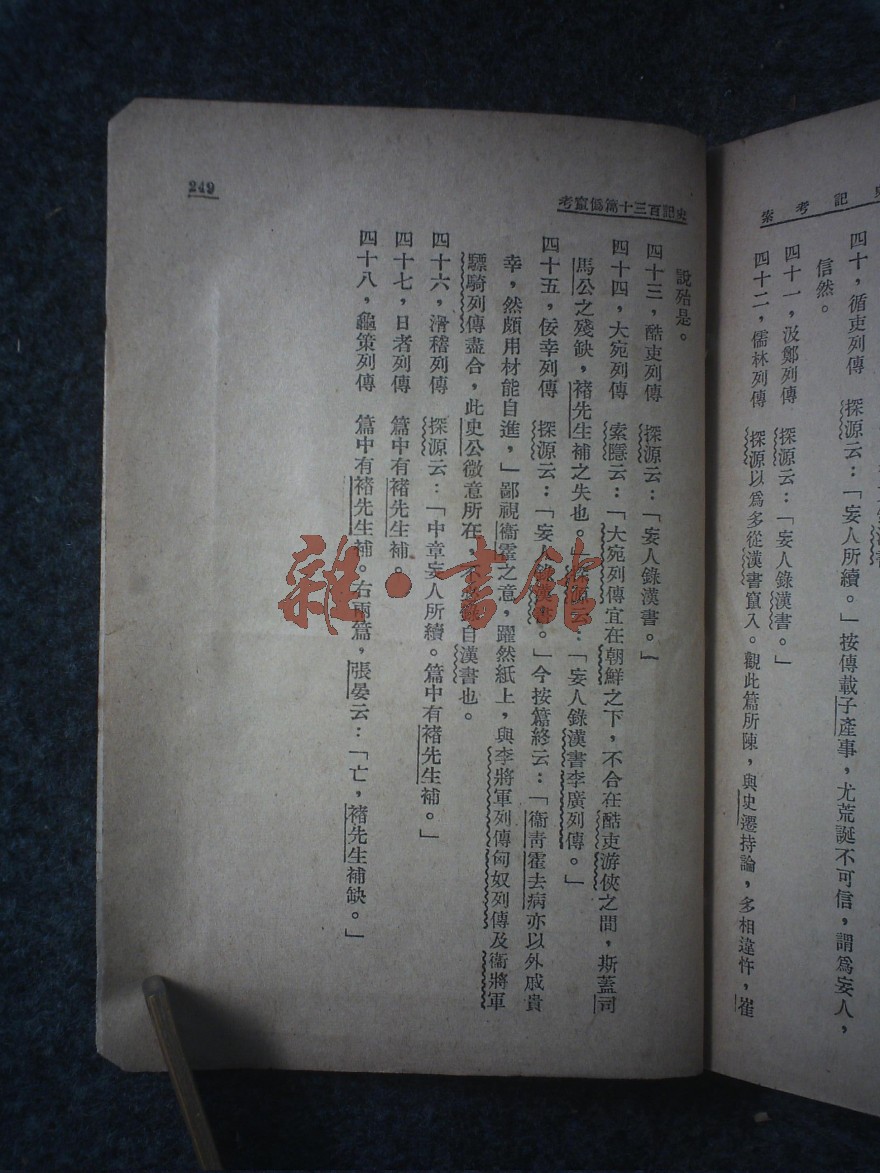 史記考索
四十，循吏列傳　探源云：「妄人所續。」按傳載子產事，尤荒誕不可信，謂爲妄人，
信然。
四十一，汲鄭列傳　探源云：「妄人錄漢書。」
四十二，儒林列傳　探源以爲多從漢書竄入。觀此篇所陳，與史遷持論，多相違忤，崔
史記百三十篇僞竄考
249
說殆是。
四十三，酷吏列傳　探源云：「妄人錄漢書。」
四十四，大宛列傳　索隱云：「大宛列傳宜在朝鮮之下，不合在酷吏游俠之間，斯蓋司
馬公之殘缺，褚先生補之失也。」探源云：「妄人錄漢書李廣列傳。」
四十五，佞幸列傳　探源云：「妄人錄漢書。」今按篇終云：「衞青霍去病亦以外戚貴
幸，然頗用材能自進，」鄙視衞霍之意，躍然紙上，與李將軍列傳匈奴列傳及衞將軍
驃騎列傳盡合，此史公微意所在，不自漢書也。
四十六，滑稽列傳　探源云：「中章妄人所續。篇中有褚先生補。」
四十七，日者列傳　篇中有褚先生補。
四十八，龜策列傳　篇中有褚先生補。右兩篇，張晏云：「亡，褚先生補缺。」
雜·書館